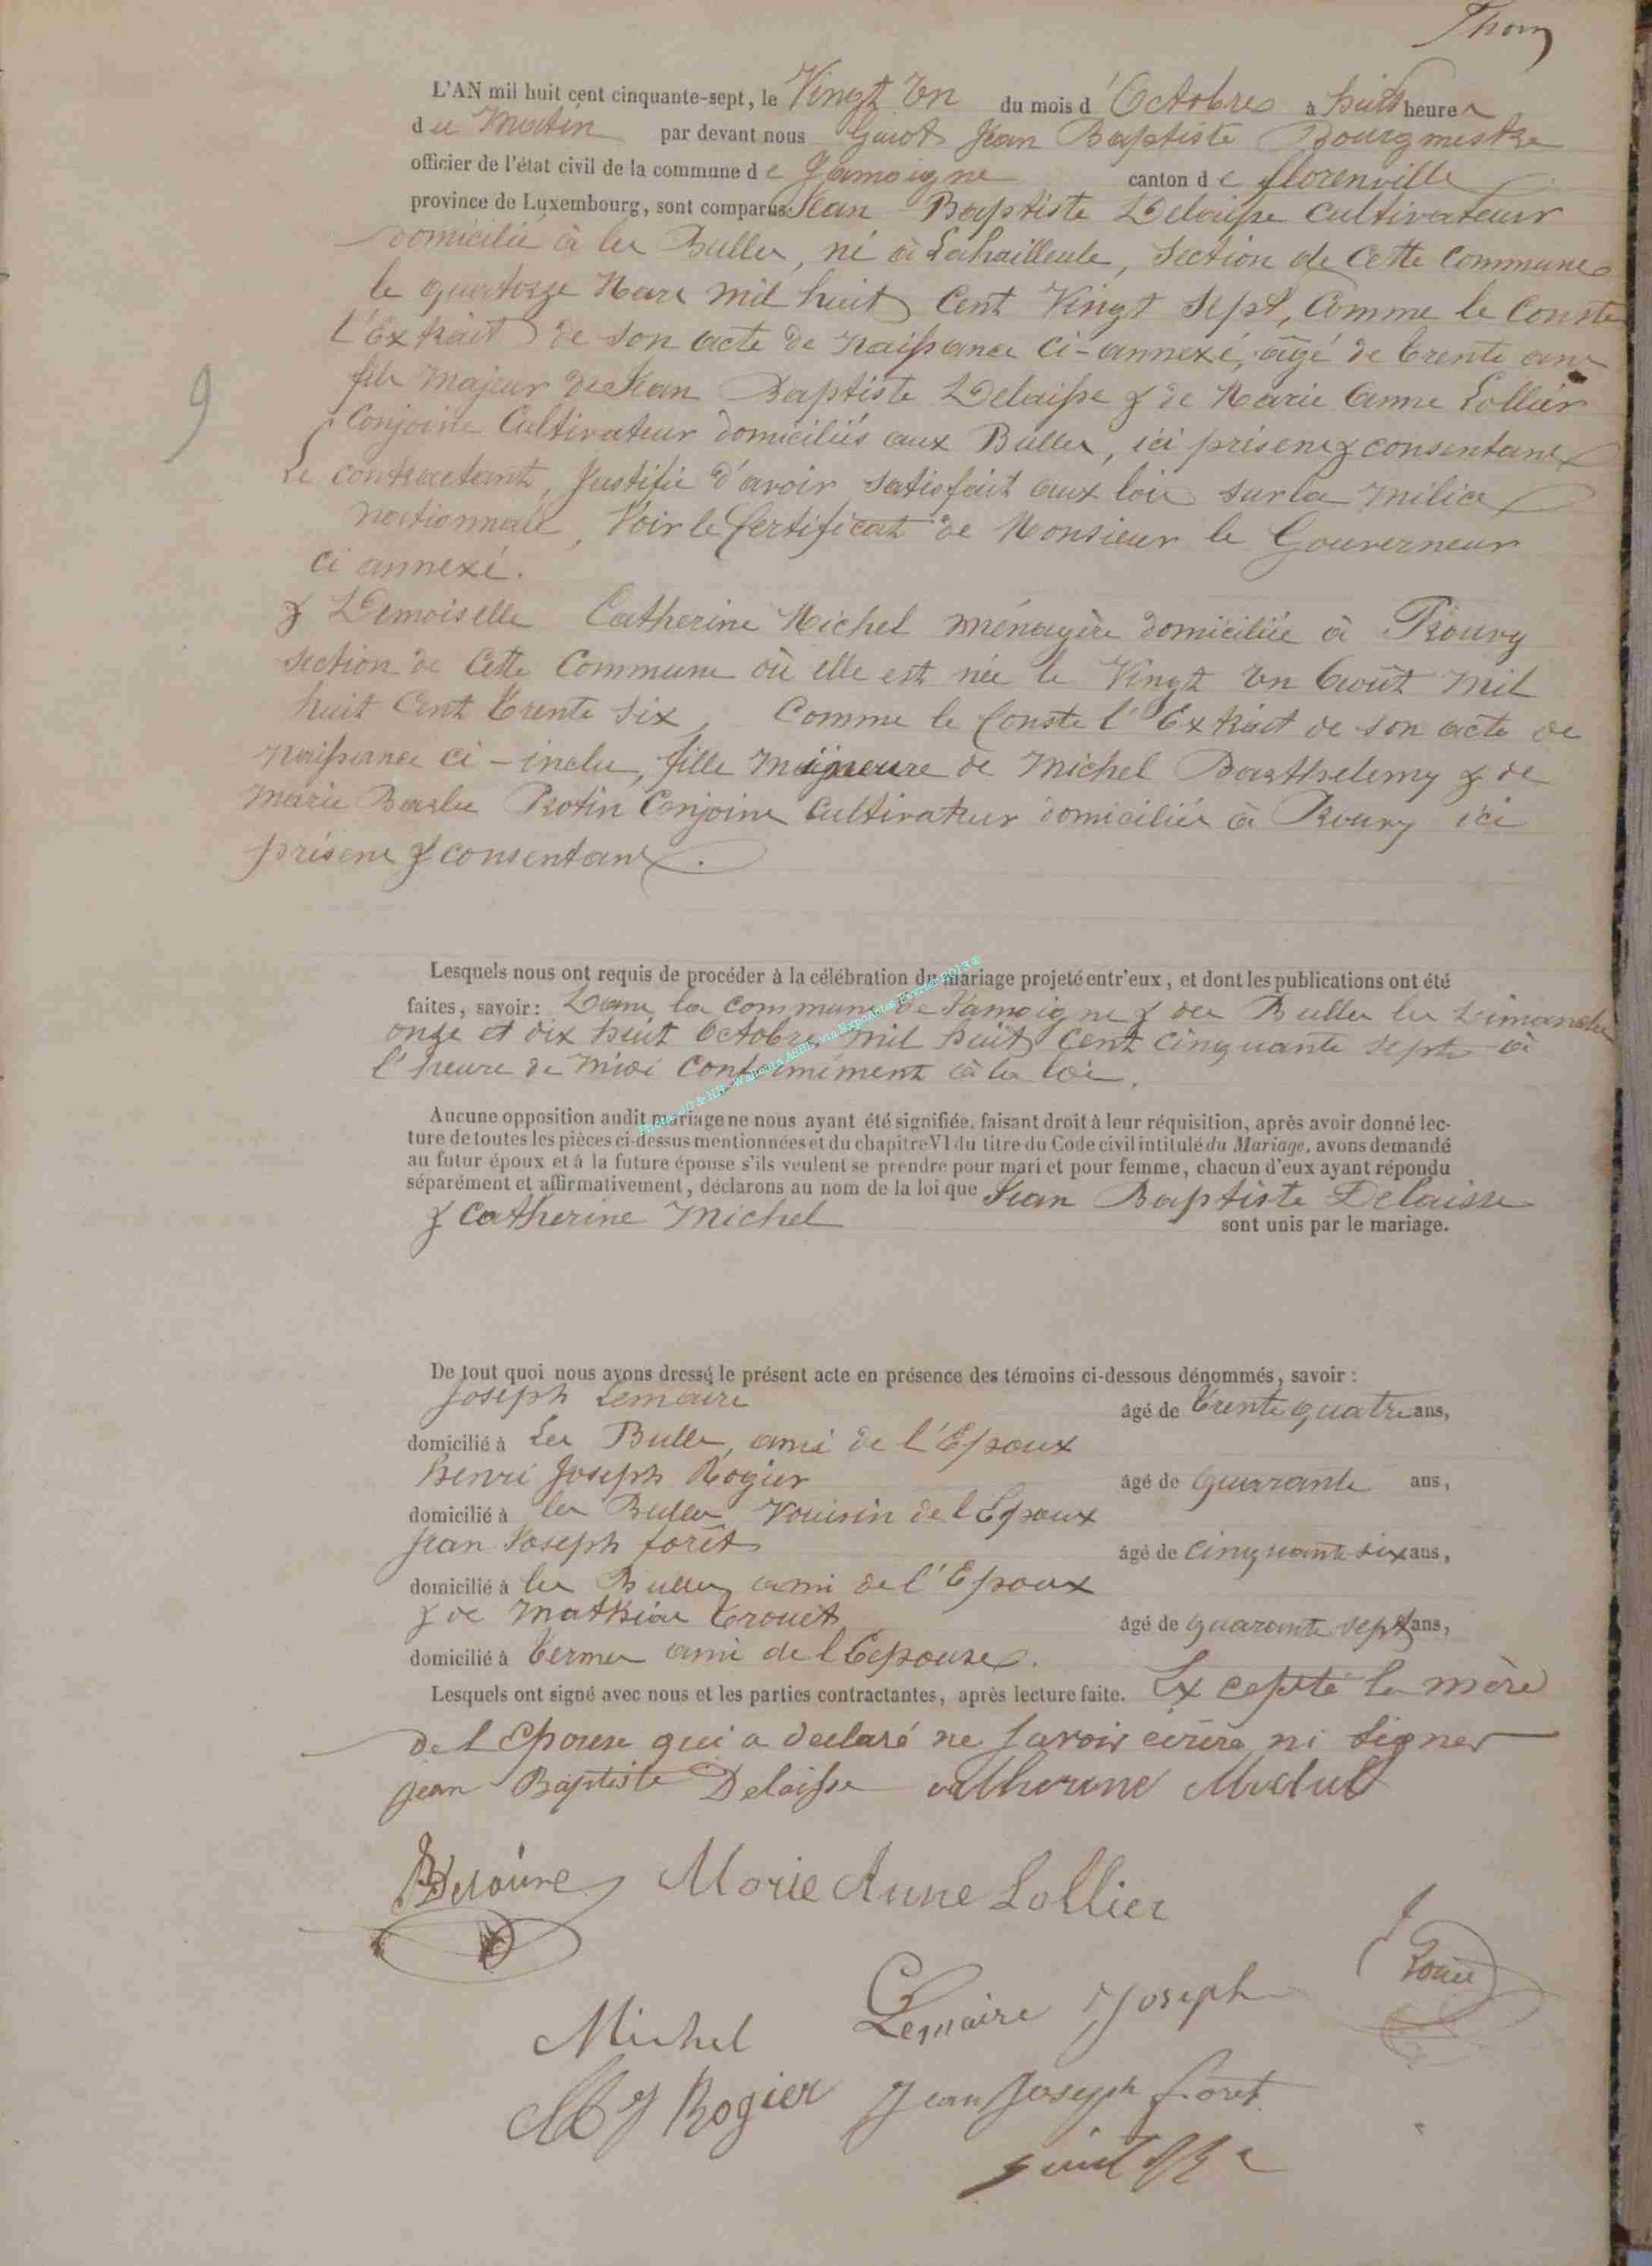 Thom
L'AN mil huit cent cinquante-sept, le Vingt Un du mois d'Octobre à huit heures
du Matin par devant nous Guiot Jean Baptiste Bourgmestre
officier de l'état civil de la commune de Jamoigne canton de florenville
province de Luxembourg, sont comparus: Jean Baptiste Delaisse cultivateur
domicilié à les Bulles, né à Lahailleule, Section de Cette Commune
le quatorze Mars mil huit Cent Vingt Sept, Comme le Conste
l'Extrait de son acte de naissance ci-annexé, âgé de trente ans
9
fils Majeur de Jean Baptiste Delaisse & de Marie Anne Lollier
Conjoins Cultivateurs domiciliés aux Bulles, ici présens & consentans
Le contractant, Justifie d'avoir satisfait aux lois sur la milice
nationnale, Voir le Certificat de Monsieur le Gouverneur
ci annexé.
& Demoiselle Catherine Michel ménagère domiciliée à Prouvy
section de Cette Commune où elle est née le Vingt Un Août Mil
huit Cent trente six, Comme le Conste l'Extrait de son acte de
naissance ci-inclus, fille mineure de Michel Barthelemy & de
Marie Barbe Rotin Conjoins Cultivateurs domiciliés à Prouvy ici
présens & consentans.
Lesquels nous ont requis de procéder à la célébration du mariage projeté entr'eux, et dont les publications ont été
faites, savoir: Dans la Commune de Jamoigne & des Bulles les Dimanches
onze et dix huit Octobre mil huit Cent Cinquante sept à
l'heure de Midi Conformément à la loi.
Photo JG & HR - Wallonia ASBL via Exponantes Février 2013 ©
Aucune opposition audit mariage ne nous ayant été signifiée, faisant droit à leur réquisition, après avoir donné lec-
ture de toutes les pièces ci-dessus mentionnées et du chapitre VI du titre du Code civil intitulé du Mariage, avons demandé
au futur époux et à la future épouse s'ils veulent se prendre pour mari et pour femme, chacun d'eux ayant répondu
séparément et affirmativement, déclarons au nom de la loi que Jean Baptiste Delaisse
& Catherine Michel sont unis par le mariage.
De tout quoi nous avons dressé le présent acte en présence des témoins ci-dessous dénommés, savoir:
Joseph Lemaire âgé de trente quatre ans,
domicilié à Les Bulles, ami de l'Epoux
Henri Joseph Rogier âgé de quarante ans,
domicilié à les Bulles Voisin de l'Epoux
Jean Joseph forêt âgé de cinquante six ans,
domicilié à les Bulles ami de l'Epoux
& de Mathias Crouet âgé de quarante sept ans,
domicilié à termes ami de l'Epouse.
Lesquels ont signé avec nous et les parties contractantes, après lecture faite. Excepté la mère
de l'Epouse qui a déclaré ne savoir écrire ni signer
jean Baptiste Delaisse catherine Michel
Marie Anne Lollier
Michel Lemaire Joseph
H J Rogier Jean Joseph foret